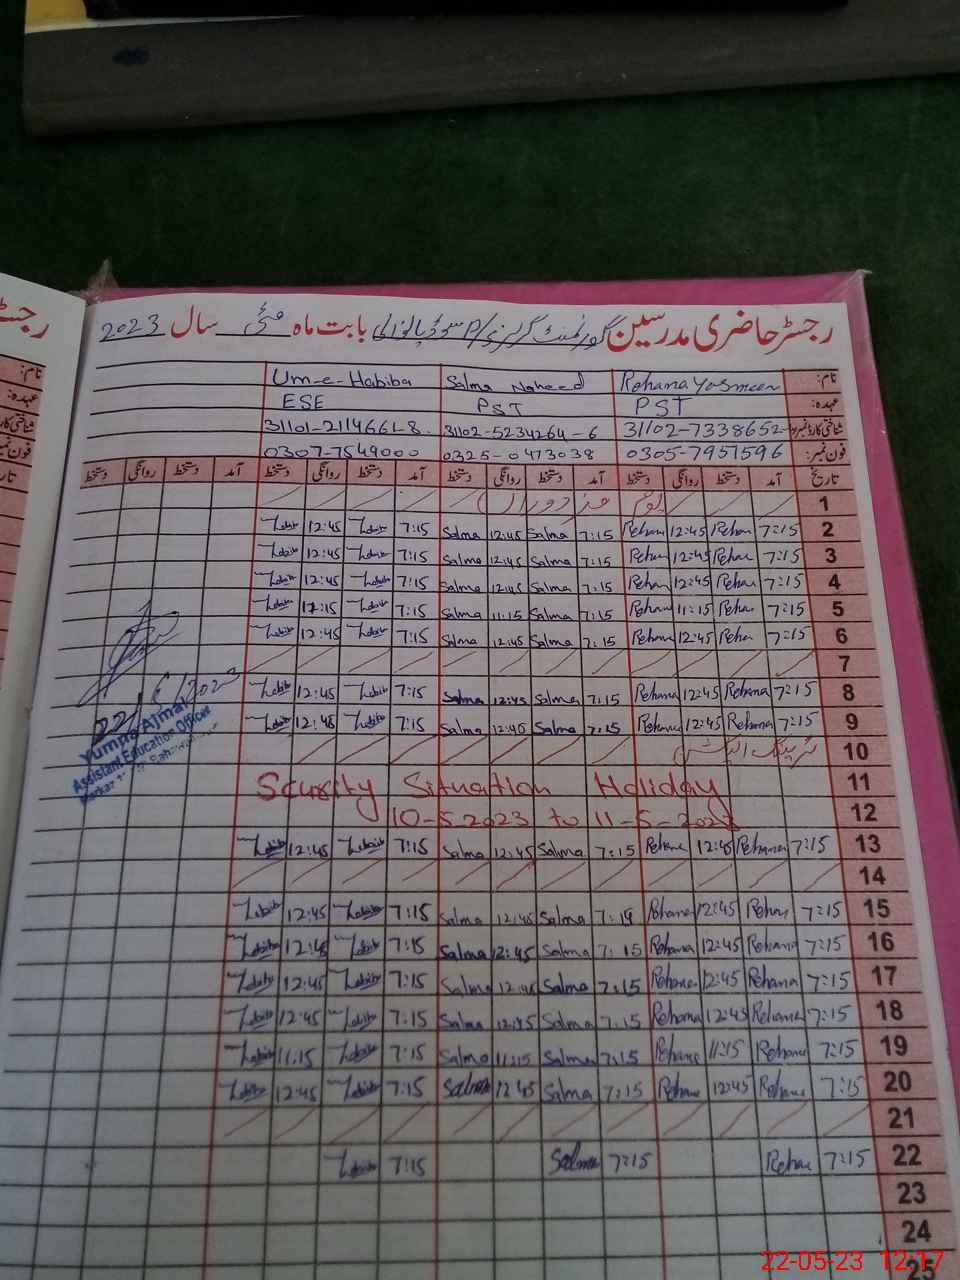 رجسٹر حاضری مدرسین گورنمنٹ گرلز بابت ماہ مئی سال 2023
نام: Rehana Yasmeen Salma Naheed Um-e-Habiba
عہدہ: PST PST ESE
شناختی کارڈ نمبر 31102-7338652- 31102-5234264-6 31101-2114661-8.
فون نمبر: 0305-7951596 0325-0473038 0307-7549000
تاریخ آمد دستخط روانگی دستخط آمد دستخط روانگی دستخط آمد دستخط روانگی دستخط آمد دستخط روانگی دستخط
1 یوم
2 7:15 Rehan 12:45 Rehan 7:15 Salma 12:45 Salma 7:15 Habib 12:45 Habib
3 7:15 Rehan 12:45 Rehan 7:15 Salma 12:45 Salma 7:15 Habib 12:45 Habib
4 7:15 Rehan 12:45 Rehan 7:15 Salma 12:45 Salma 7:15 Habib 12:45 Habib
5 7:15 Rehan 11:15 Rehan 7:15 Salma 11:15 Salma 7:15 Habib 11:15 Habib
6 7:15 Rehan 12:45 Rehana 7:15 Salma 12:45 Salma 7:15 Habib 12:45 Habib
7
8 7:15 Rehana 12:45 Rehana 7:15 Salma 12:45 Salma 7:15 Habib 12:45 Habib
9 7:15 Rehana 12:45 Rehana 7:15 Salma 12:45 Salma 7:15 Habib 12:45 Habib
10
11 Scurity Situation Holiday
12 10-5-2023 to 11-5-2023
13 7:15 Rehana 12:45 Rehana 7:15 Salma 12:45 Salma 7:15 Habib 12:45 Habib
14
15 7:15 Rehan 12:45 Rehana 7:15 Salma 12:45 Salma 7:15 Habib 12:45 Habib
16 7:15 Rehana 12:45 Rehana 7:15 Salma 12:45 Salma 7:15 Habib 12:45 Habib
17 7:15 Rehana 12:45 Rehana 7:15 Salma 12:45 Salma 7:15 Habib 12:45 Habib
18 7:15 Rehana 12:45 Rehana 7:15 Salma 12:45 Salma 7:15 Habib 12:45 Habib
19 7:15 Rehana 11:15 Rehana 7:15 Salma 11:15 Salma 7:15 Habib 11:15 Habib
20 7:15 Rehana 12:45 Rehana 7:15 Salma 12:45 Salma 7:15 Habib 12:45 Habib
21
22 7:15 Rehan 7:15 Salma 7:15 Habib
23
24
25
22/5/2023
Yumna Ajmal
Assistant Education Officer
Markaz
رجسٹ
نام:
عہدہ:
22-05-23 12:17